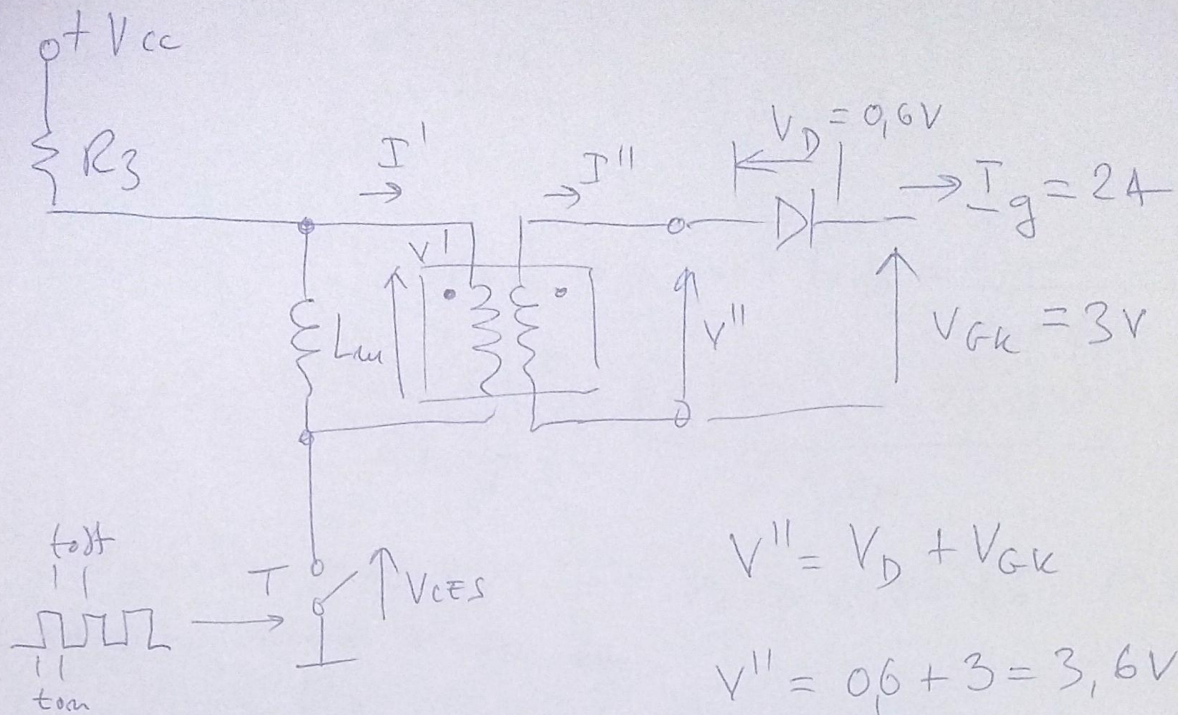 + Vcc
R3
I'
I''
VD = 0,6V
Ig = 2A
V'
Lm
V''
VGK = 3V
toff
T
VCES
ton
V'' = VD + VGK
V'' = 0,6 + 3 = 3,6V